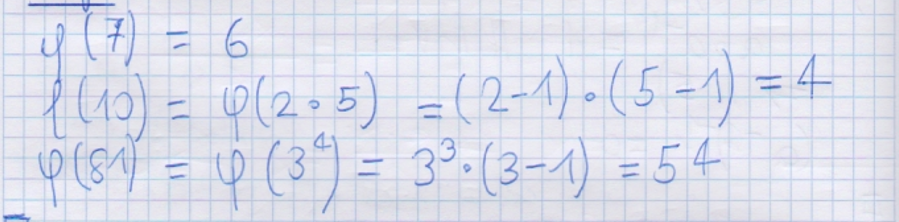 φ(7) = 6
φ(10) = φ(2·5) = (2-1)·(5-1) = 4
φ(81) = φ(3⁴) = 3³·(3-1) = 54